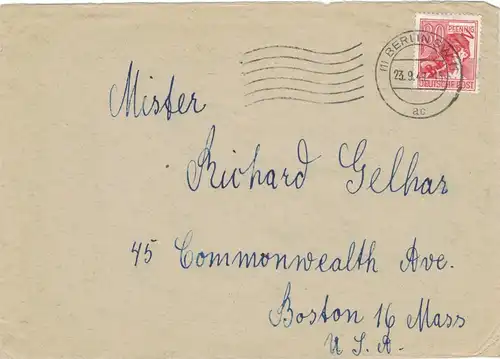 PFENNIG
(1) BERLIN
23.9.47
DEUTSCHE POST
ac
Mister
Richard Gelhar
45 Commonwealth Ave.
Boston 16 Mass
U.S.A.